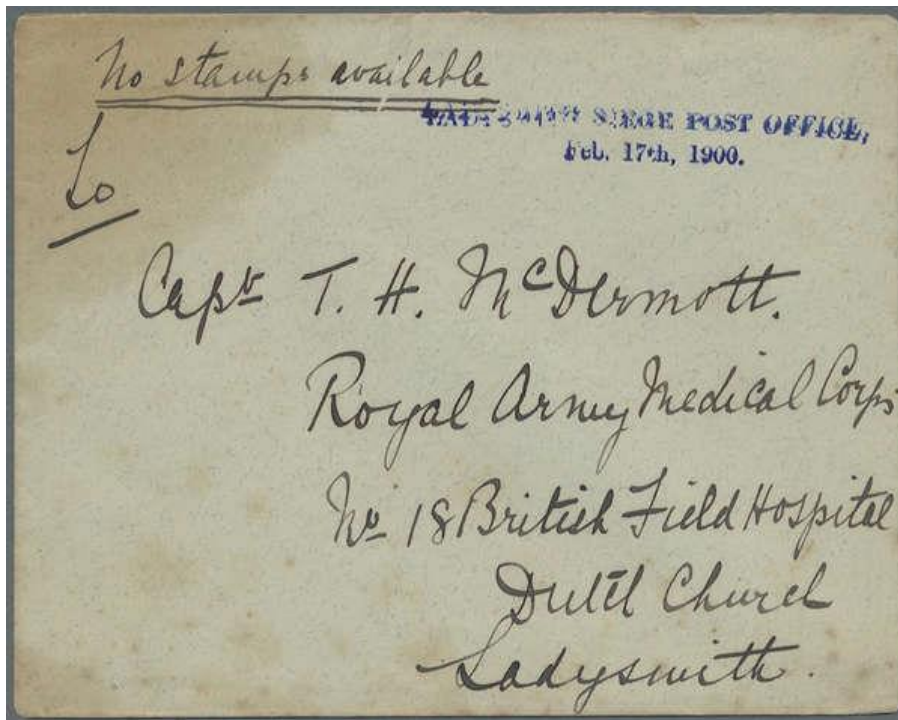 No stamps available
LADYSMITH SIEGE POST OFFICE,
Feb. 17th, 1900.
To
Capt T. H. McDermott.
Royal Army Medical Corps
No 18 British Field Hospital
Dutch Church
Ladysmith.